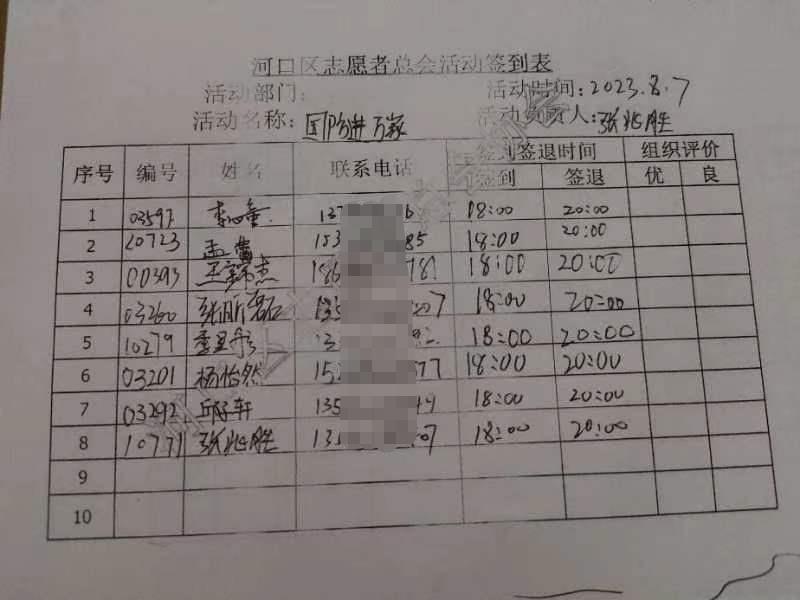 河口区志愿者总会活动签到表
活动部门: 活动时间: 2023.8.7
活动名称: 国防进万家 活动负责人: 张兆胜
序号 编号 姓名 联系电话 签到签退时间 组织评价
签到 签退 优 良
1 03597 18:00 20:00
2 10723 孟 153 85 18:00 20:00
3 00393 王 杰 186 781 18:00 20:00
4 03260 张 磊 07 18:00 20:00
5 10279 18:00 20:00
6 03201 杨怡然 15 77 18:00 20:00
7 03292 邱子轩 135 49 18:00 20:00
8 10771 张兆胜 13 07 18:00 20:00
9
10